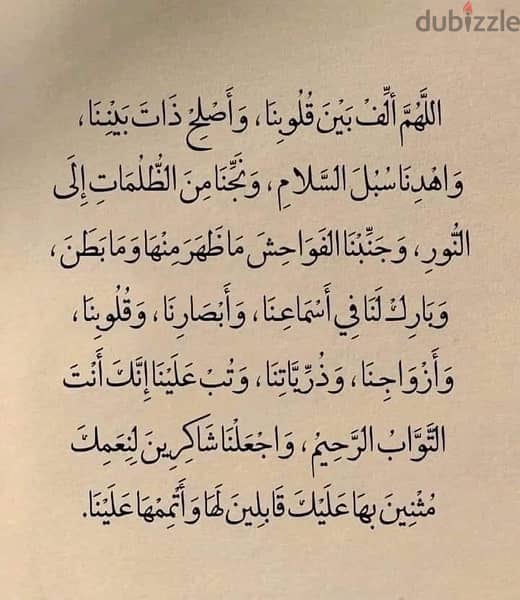 dubizzle
اللَّهُمَّ أَلِّفْ بَيْنَ قُلُوبِنَا، وَأَصْلِحْ ذَاتَ بَيْنِنَا،
وَاهْدِنَا سُبُلَ السَّلَامِ، وَنَجِّنَا مِنَ الظُّلُمَاتِ إِلَى
النُّورِ، وَجَنِّبْنَا الفَوَاحِشَ مَا ظَهَرَ مِنْهَا وَمَا بَطَنَ،
وَبَارِكْ لَنَا فِي أَسْمَاعِنَا، وَأَبْصَارِنَا، وَقُلُوبِنَا،
وَأَزْوَاجِنَا، وَذُرِّيَّاتِنَا، وَتُبْ عَلَيْنَا إِنَّكَ أَنْتَ
التَّوَّابُ الرَّحِيمُ، وَاجْعَلْنَا شَاكِرِينَ لِنِعَمِكَ
مُثْنِينَ بِهَا عَلَيْكَ قَابِلِينَ لَهَا وَأَتْمِمْهَا عَلَيْنَا.